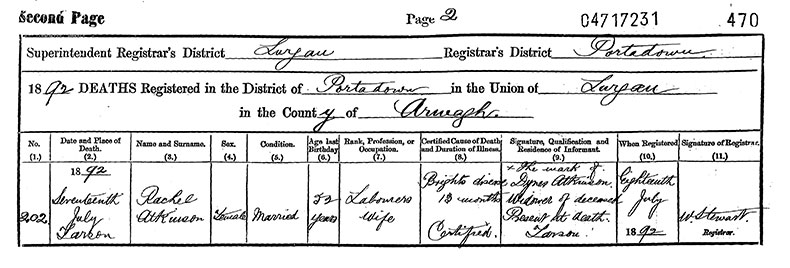 Second Page
Page 2
04717231
470
Superintendent Registrar's District Lurgan Registrar's District Portadown
1892 DEATHS Registered in the District of Portadown in the Union of Lurgan
in the County of Armagh
No. (1.)
Date and Place of Death. (2.)
Name and Surname. (3.)
Sex. (4.)
Condition. (5.)
Age last Birthday (6.)
Rank, Profession, or Occupation. (7.)
Certified Cause of Death and Duration of Illness. (8.)
Signature, Qualification and Residence of Informant. (9.)
When Registered (10.)
Signature of Registrar. (11.)
202
1892
Seventeenth
July
Tarson
Rachel
Atkinson
Female
Married
52
years
Labourers
Wife
Brights disease
13 months
Certified.
x The mark of
Dynes Atkinson.
Widower of deceased
Present at death.
Tarson.
Eighteenth
July
1892
W. Stewart
Registrar.